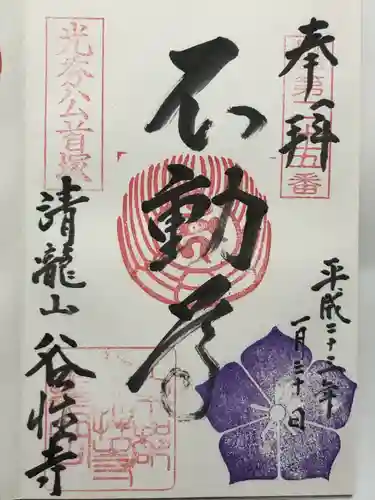 奉拝
第
五番
平成二十二年
一月三十日
不動尊
光秀公首塚
清龍山 谷性寺